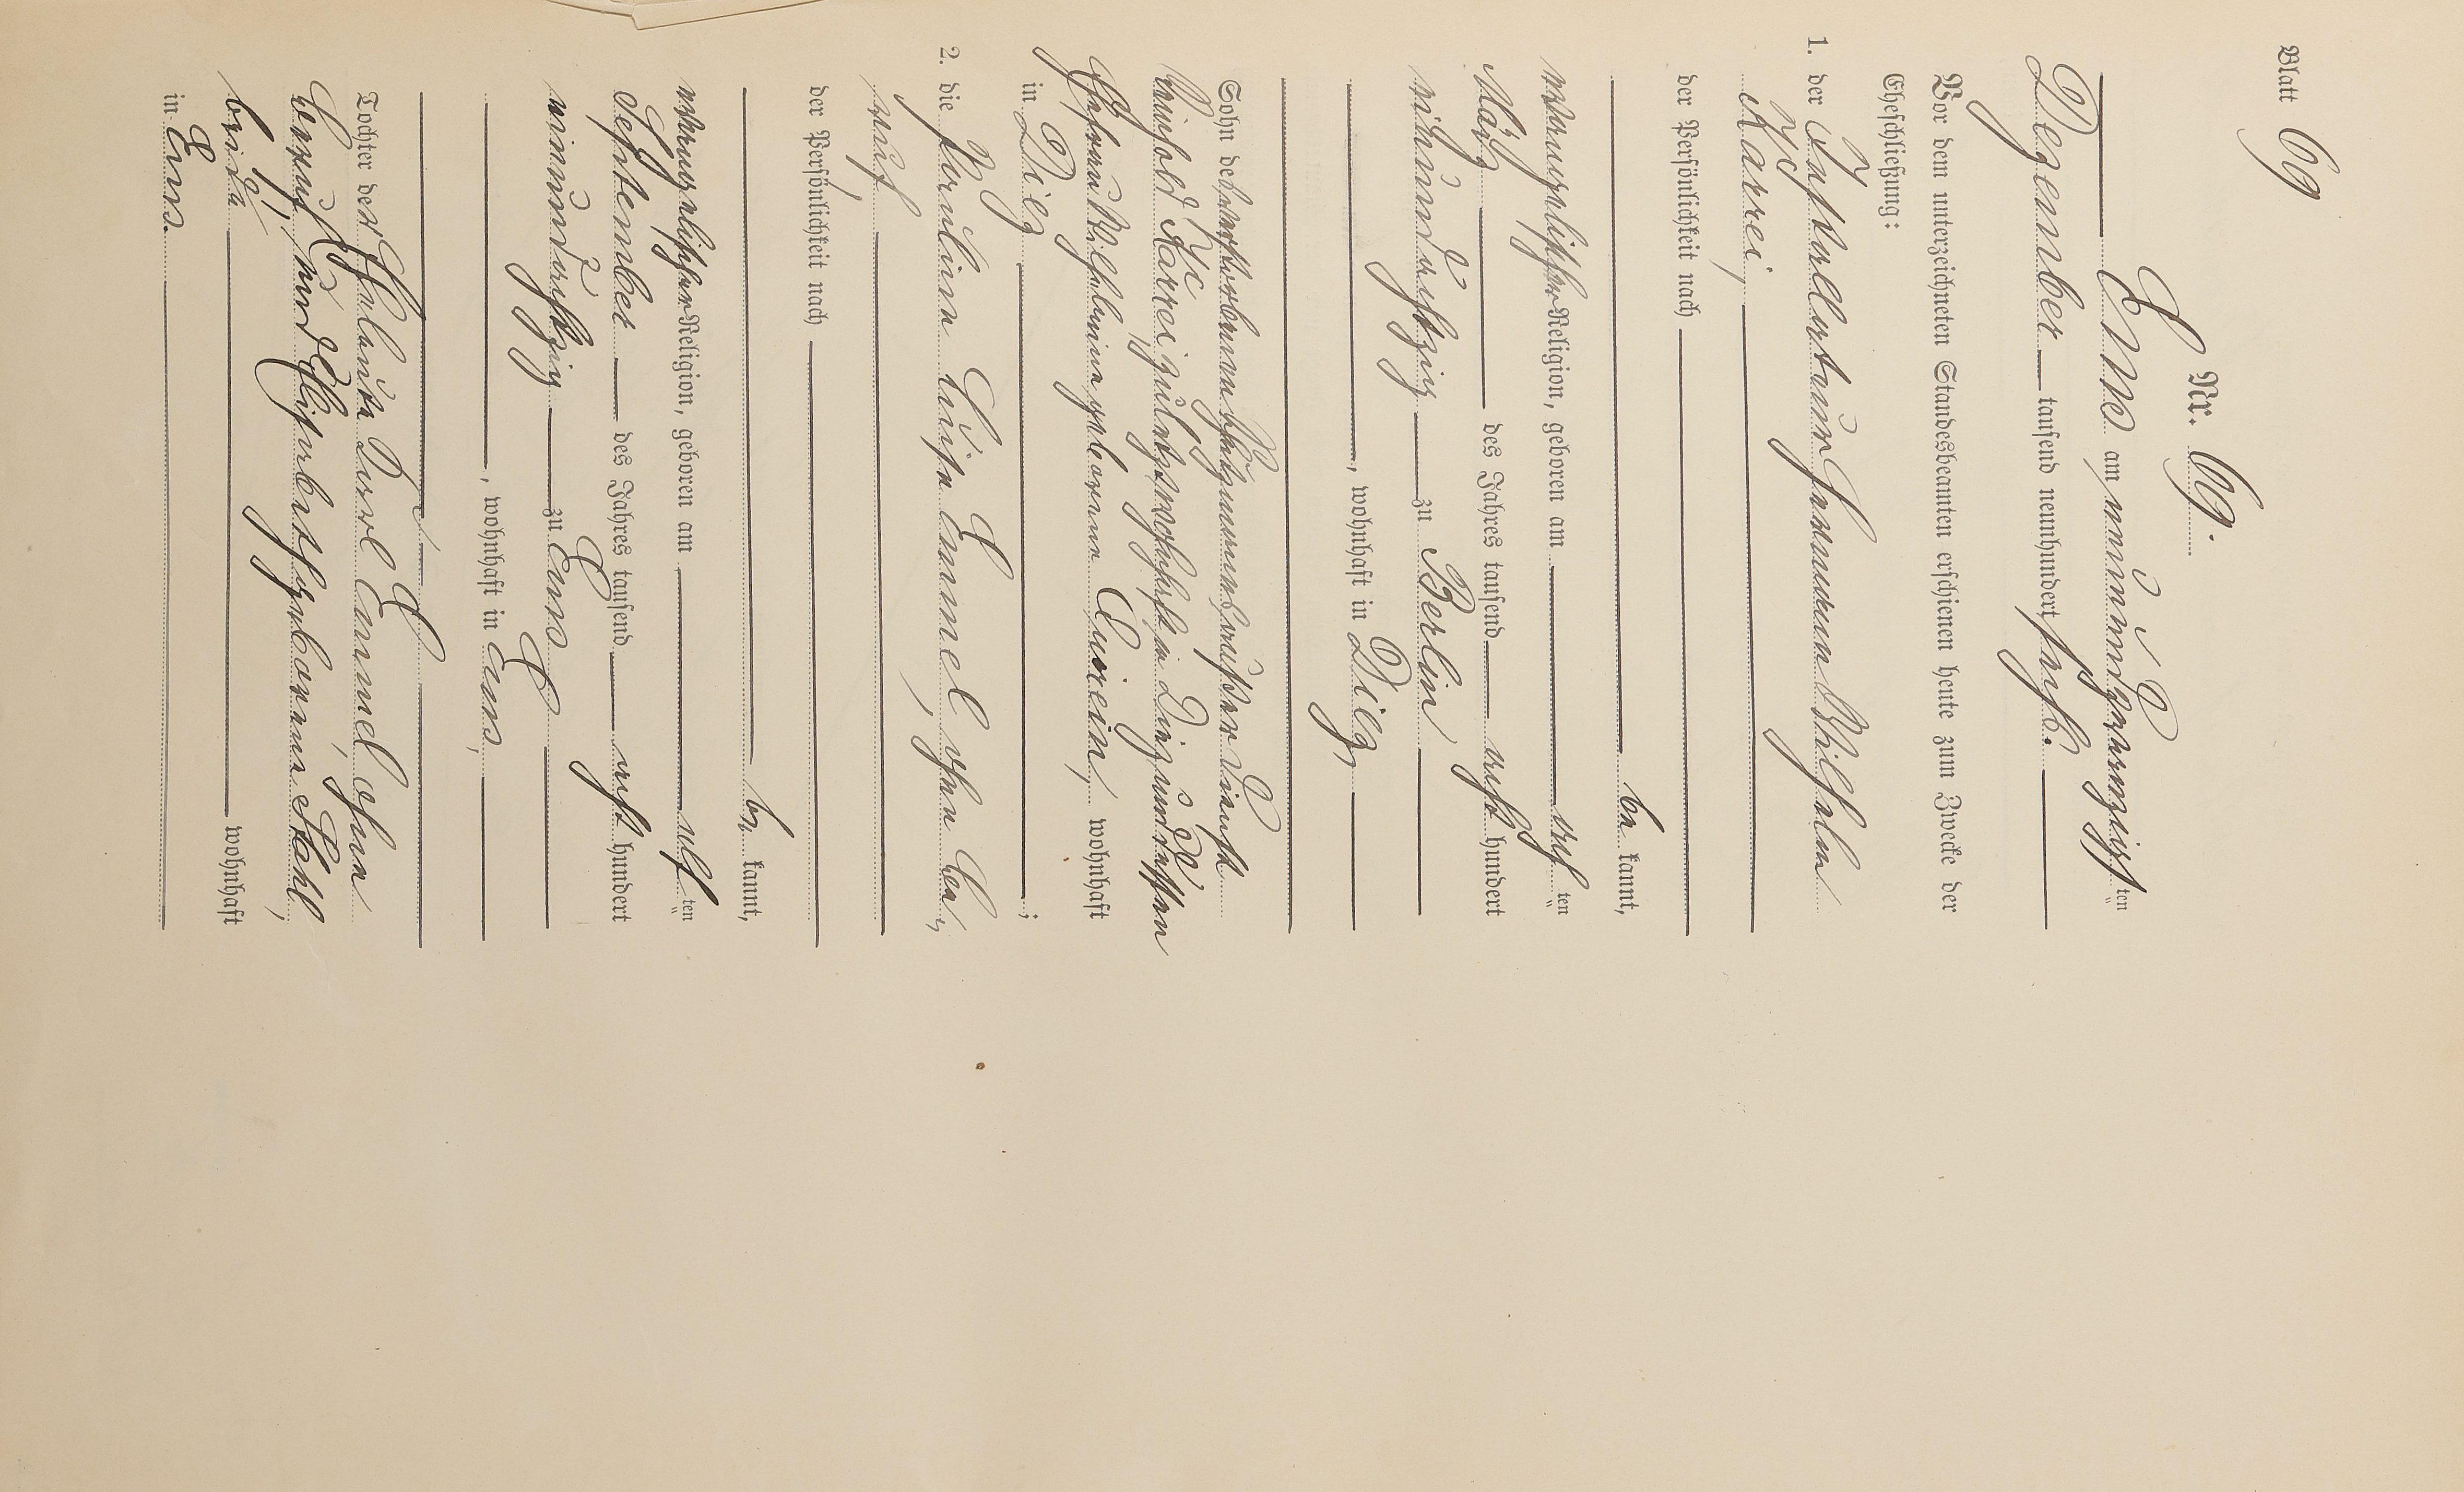 Blatt 69
Nr. 69.
Ems am neunundzwanzigsten
Dezember tausend neunhundert sechs.
Vor dem unterzeichneten Standesbeamten erschienen heute zum Zwecke der
Eheschließung:
1. der Installateur Hermann Wilhelm
Karrei,
der Persönlichkeit nach
be kannt,
evangelischer Religion, geboren am acht ten
März des Jahres tausend acht hundert
einundachtzig zu Berlin
, wohnhaft in Diez,
Sohn des verstorbenen
Karrei, zuletzt wohnhaft in Diez und dessen
Ehefrau Wilhelmine geborene wohnhaft
in Diez ;
2. die Karoline Luise Emmel, ohne Be-
ruf,
der Persönlichkeit nach
be kannt,
evangelischer Religion, geboren am elf ten
September des Jahres tausend acht hundert
neunundachtzig zu Ems
, wohnhaft in Ems,
Tochter der Eheleute Karl Emmel, ohne
Beruf, und Elisabeth geborene Stahl,
beide wohnhaft
in Ems.